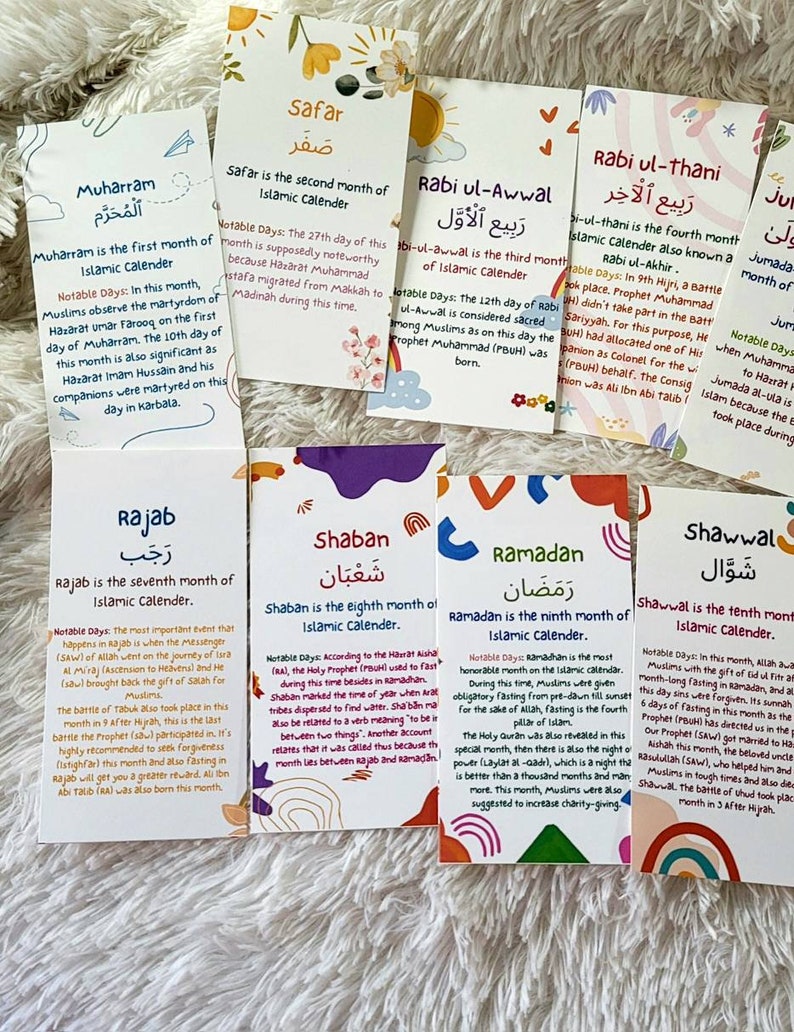 Muharram
ٱلْمُحَرَّم
Muharram is the first month of
Islamic Calender
Notable Days: In this month,
Muslims observe the martyrdom of
Hazarat Umar Farooq on the first
day of Muharram. The 10th day of
this month is also significant as
Hazarat Imam Hussain and his
companions were martyred on this
day in Karbala.
Safar
صَفَر
Safar is the second month of
Islamic Calender
Notable Days: The 27th day of this
month is supposedly noteworthy
because Hazarat Muhammad
Mustafa migrated from Makkah to
Madinah during this time.
Rabi ul-Awwal
رَبِيع ٱلْأَوَّل
abi-ul-awwal is the third month
of Islamic Calender
Notable Days: The 12th day of Rabi
ul-Awwal is considered sacred
among Muslims as on this day the
Prophet Muhammad (PBUH) was
born.
Rabi ul-Thani
رَبِيع ٱلْآخِر
bi-ul-thani is the fourth month
Islamic Calender also known a
Rabi ul-Akhir .
table Days: In 9th Hijri, a Battle
ook place. Prophet Muhammad
UH) didn't take part in the Battl
Sariyyah. For this purpose, He
BUH) had allocated one of His
panion as Colonel for the wi
s (PBUH) behalf. The Consig
nion was Ali Ibn Abi Talib
Ju
ولَىٰ
Jumada-
month of
Jum
Notable
when Muhamm
to Hazrat
Jumada al-ula is
Islam because the B
took place during
Rajab
رَجَب
Rajab is the seventh month of
Islamic Calender.
Notable Days: The most important event that
happens in Rajab is when the Messenger
(SAW) of Allah went on the journey of Isra
Al Mi'raj (Ascension to Heavens) and He
(saw) brought back the gift of Salah for
Muslims.
The battle of Tabuk also took place in this
month in 9 After Hijrah, this is the last
battle the Prophet (saw) participated in. It's
highly recommended to seek forgiveness
(Istighfar) this month and also fasting in
Rajab will get you a greater reward. Ali Ibn
Abi Talib (RA) was also born this month.
Shaban
شَعْبَان
Shaban is the eighth month of
Islamic Calender.
Notable Days: According to the Hazrat Aishah
(RA), the Holy Prophet (PBUH) used to fast
during this time besides in Ramadhan.
Shaban marked the time of year when Arab
tribes dispersed to find water. Sha'bān ma
also be related to a verb meaning "to be in
between two things". Another account
relates that it was called thus because the
month lies between Rajab and Ramaḍan.
Ramadan
رَمَضَان
Ramadan is the ninth month of
Islamic Calender.
Notable Days: Ramadhan is the most
honorable month on the Islamic calendar.
During this time, Muslims were given
obligatory fasting from pre-dawn till sunset
for the sake of Allah, fasting is the fourth
pillar of Islam.
The Holy Quran was also revealed in this
special month, then there is also the night of
power (Laylat al-Qadr), which is a night tha
is better than a thousand months and man
more. This month, Muslims were also
suggested to increase charity-giving.
Shawwal
شَوَّال
Shawwal is the tenth mont
Islamic Calender.
Notable Days: In this month, Allah awa
Muslims with the gift of Eid ul Fitr aft
month-long fasting in Ramadan, and al
this day sins were forgiven. Its sunnah
6 days of fasting in this month as the
Prophet (PBUH) has directed us in the p
Our Prophet (SAW) got married to Haz
Aishah this month, the beloved uncle
Rasulullah (SAW), who helped him and
Muslims in tough times and also died
Shawwal. The battle of Uhud took place
month in 3 After Hijrah.